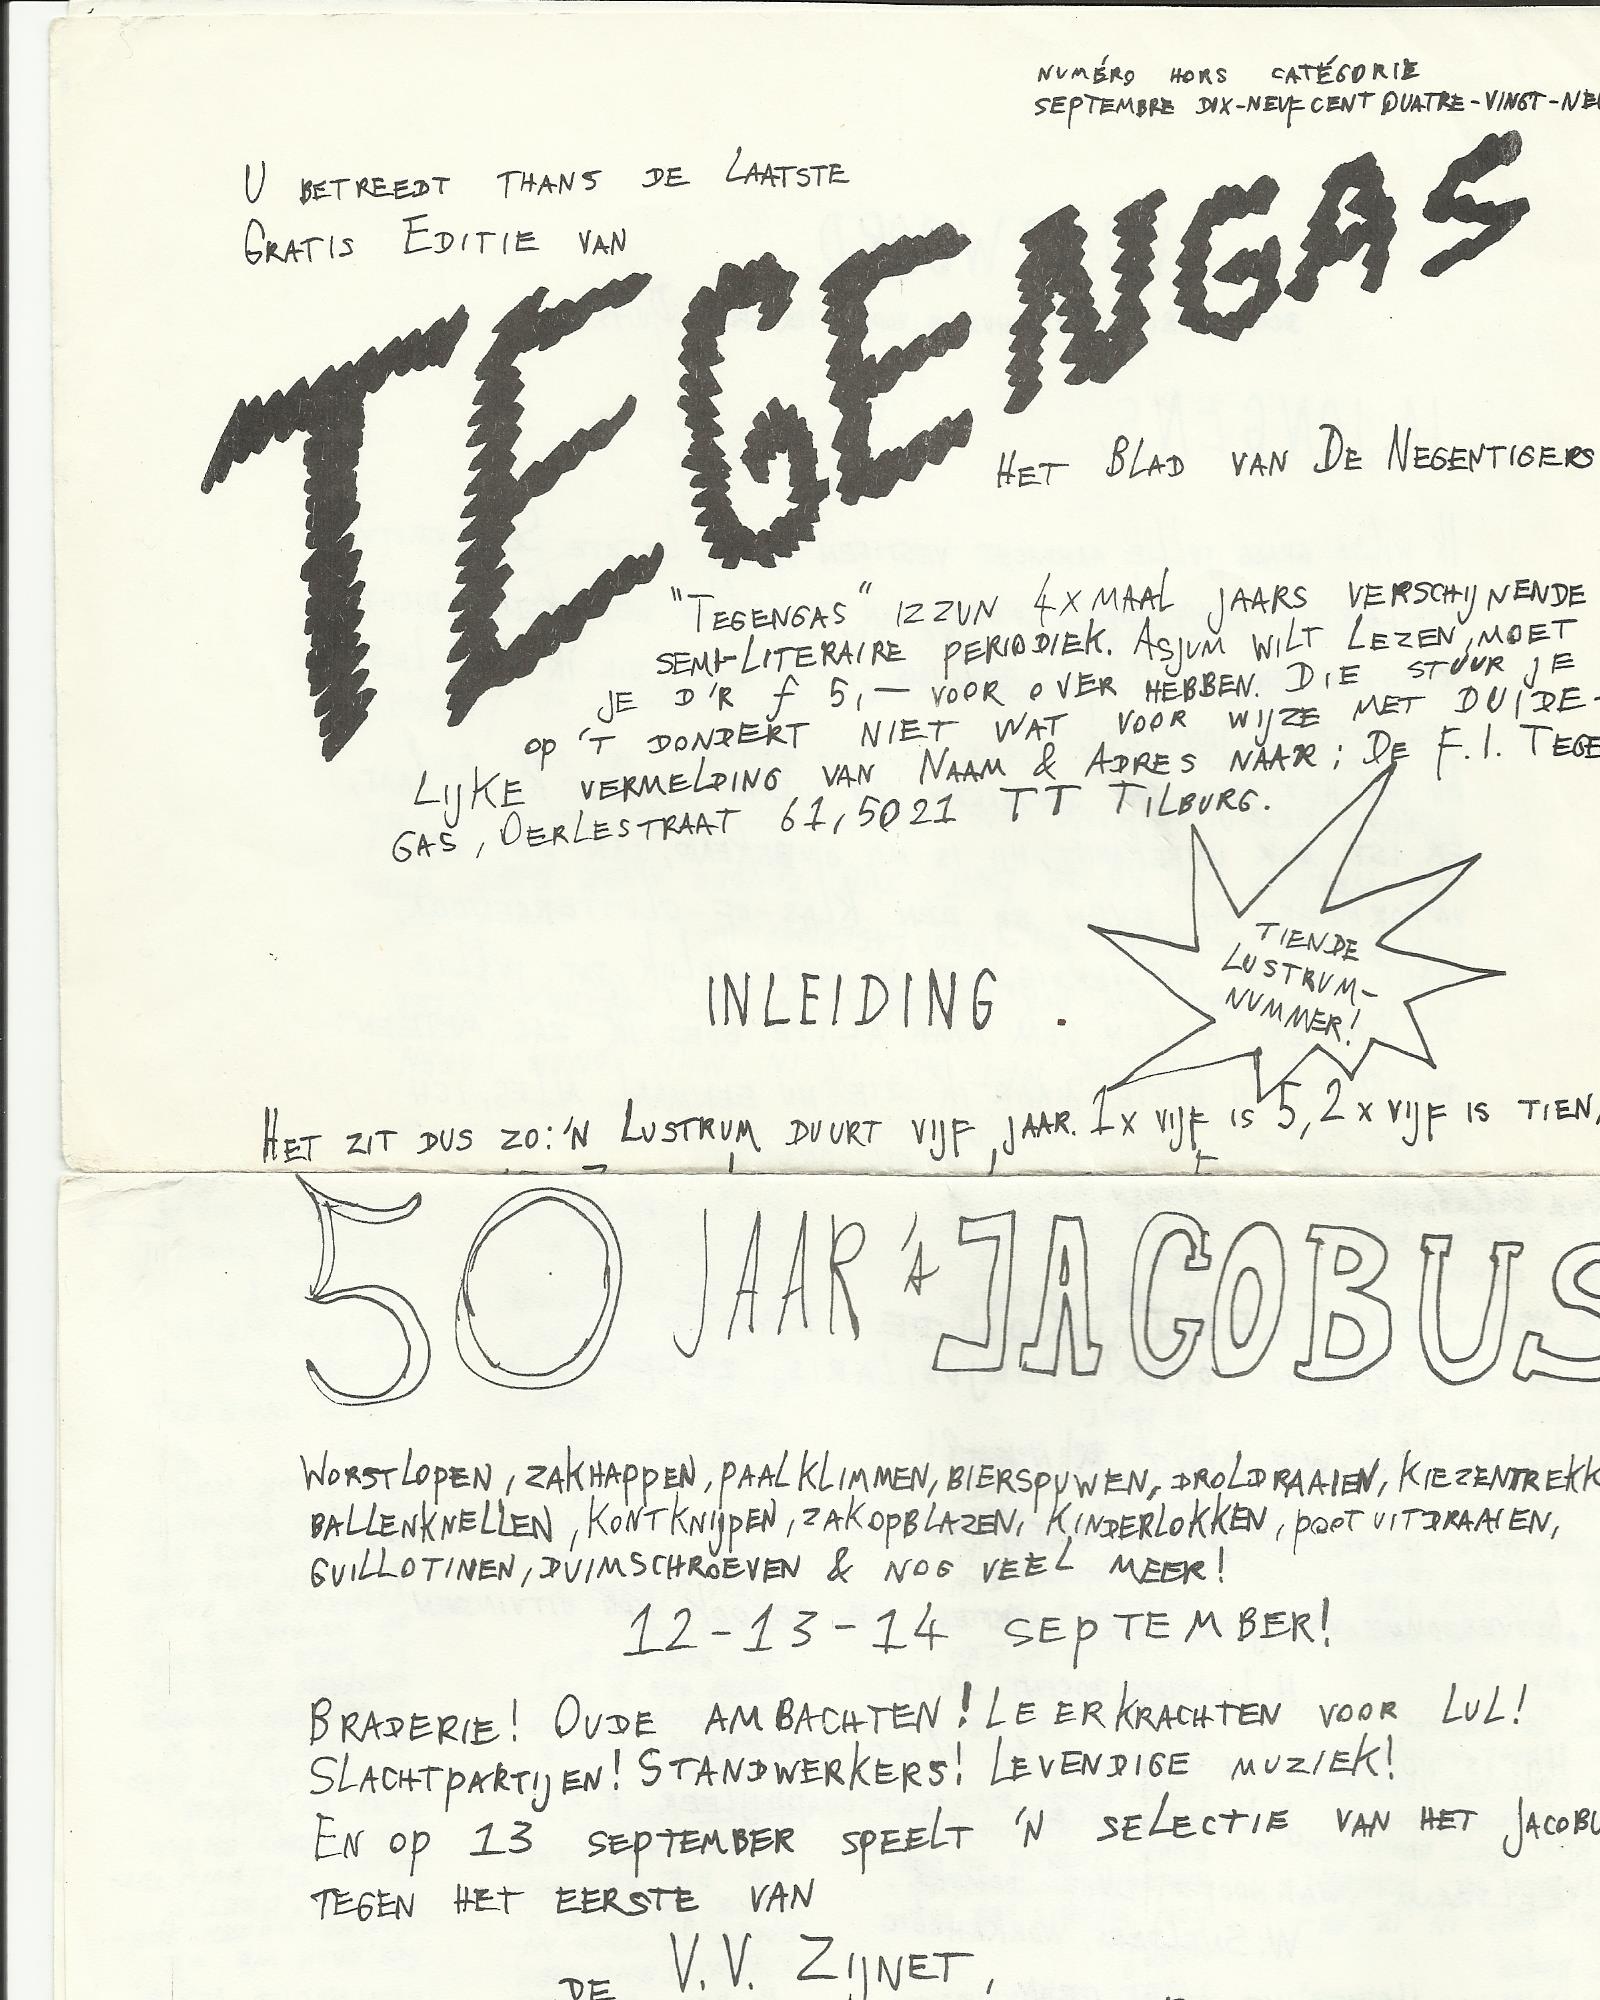 NUMÉRO HORS CATÉGORIE
SEPTEMBRE DIX-NEUF CENT QUATRE-VINGT-NEU
U BETREEDT THANS DE LAATSTE
GRATIS EDITIE VAN
TEGENGAS
HET BLAD VAN DE NEGENTIGERS
"TEGENGAS" IZZUN 4X MAAL JAARS VERSCHIJNENDE
SEMI-LITERAIRE PERIODIEK. ASJUM WILT LEZEN, MOET
JE D'R f 5,— VOOR OVER HEBBEN. DIE STUUR JE
OP 'T DONDERT NIET WAT VOOR WIJZE MET DUIDE-
LIJKE VERMELDING VAN NAAM & ADRES NAAR: DE F.I. TEGE
GAS, OERLESTRAAT 61, 5021 TT TILBURG.
TIENDE
LUSTRUM-
NUMMER!
INLEIDING
HET ZIT DUS ZO: 'N LUSTRUM DUURT VIJF JAAR. 1X VIJF IS 5, 2X VIJF IS TIEN,
50 JAAR 'S JACOBUS
WORSTLOPEN, ZAKHAPPEN, PAALKLIMMEN, BIERSPUWEN, DROLDRAAIEN, KIEZENTREKK
BALLENKNELLEN, KONTKNIJPEN, ZAKOPBLAZEN, KINDERLOKKEN, POOTUITDRAAIEN,
GUILLOTINEN, DUIMSCHROEVEN & NOG VEEL MEER!
12-13-14 SEPTEMBER!
BRADERIE! OUDE AMBACHTEN! LEERKRACHTEN VOOR LUL!
SLACHTPARTIJEN! STANDWERKERS! LEVENDIGE MUZIEK!
EN OP 13 SEPTEMBER SPEELT 'N SELECTIE VAN HET JACOBU
TEGEN HET EERSTE VAN
DE V.V. ZIJNET,